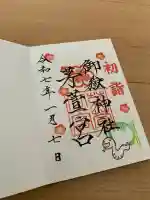 初詣
御嶽神社
茅萱宮
令和七年一月七日